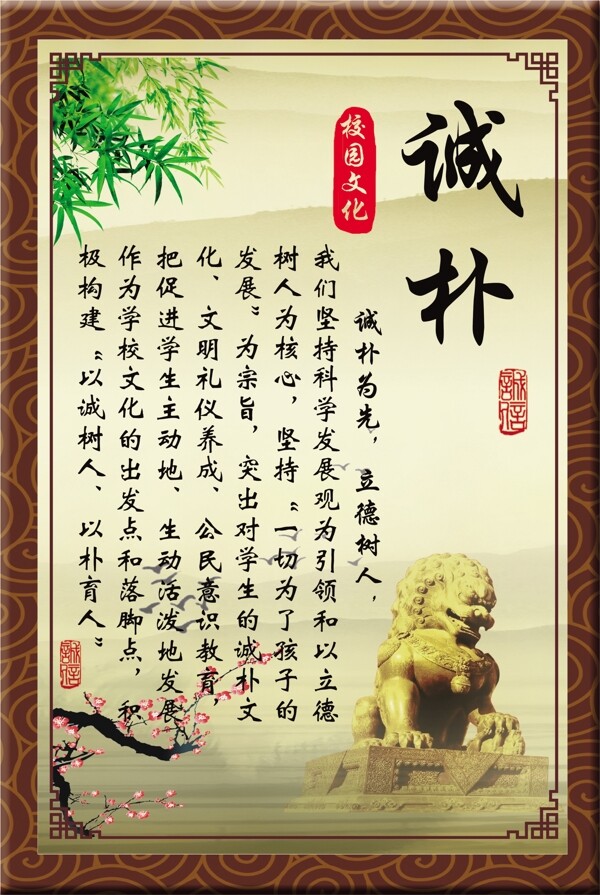 誠朴
校园文化
誠信
诚朴为先，立德树人，
我们坚持科学发展观为引领和以立德
树人为核心，坚持“一切为了孩子的
发展”为宗旨，突出对学生的诚朴文
化、文明礼仪养成、公民意识教育，
把促进学生主动地、生动活泼地发展
作为学校文化的出发点和落脚点，积
极构建“以诚树人、以朴育人”
誠信